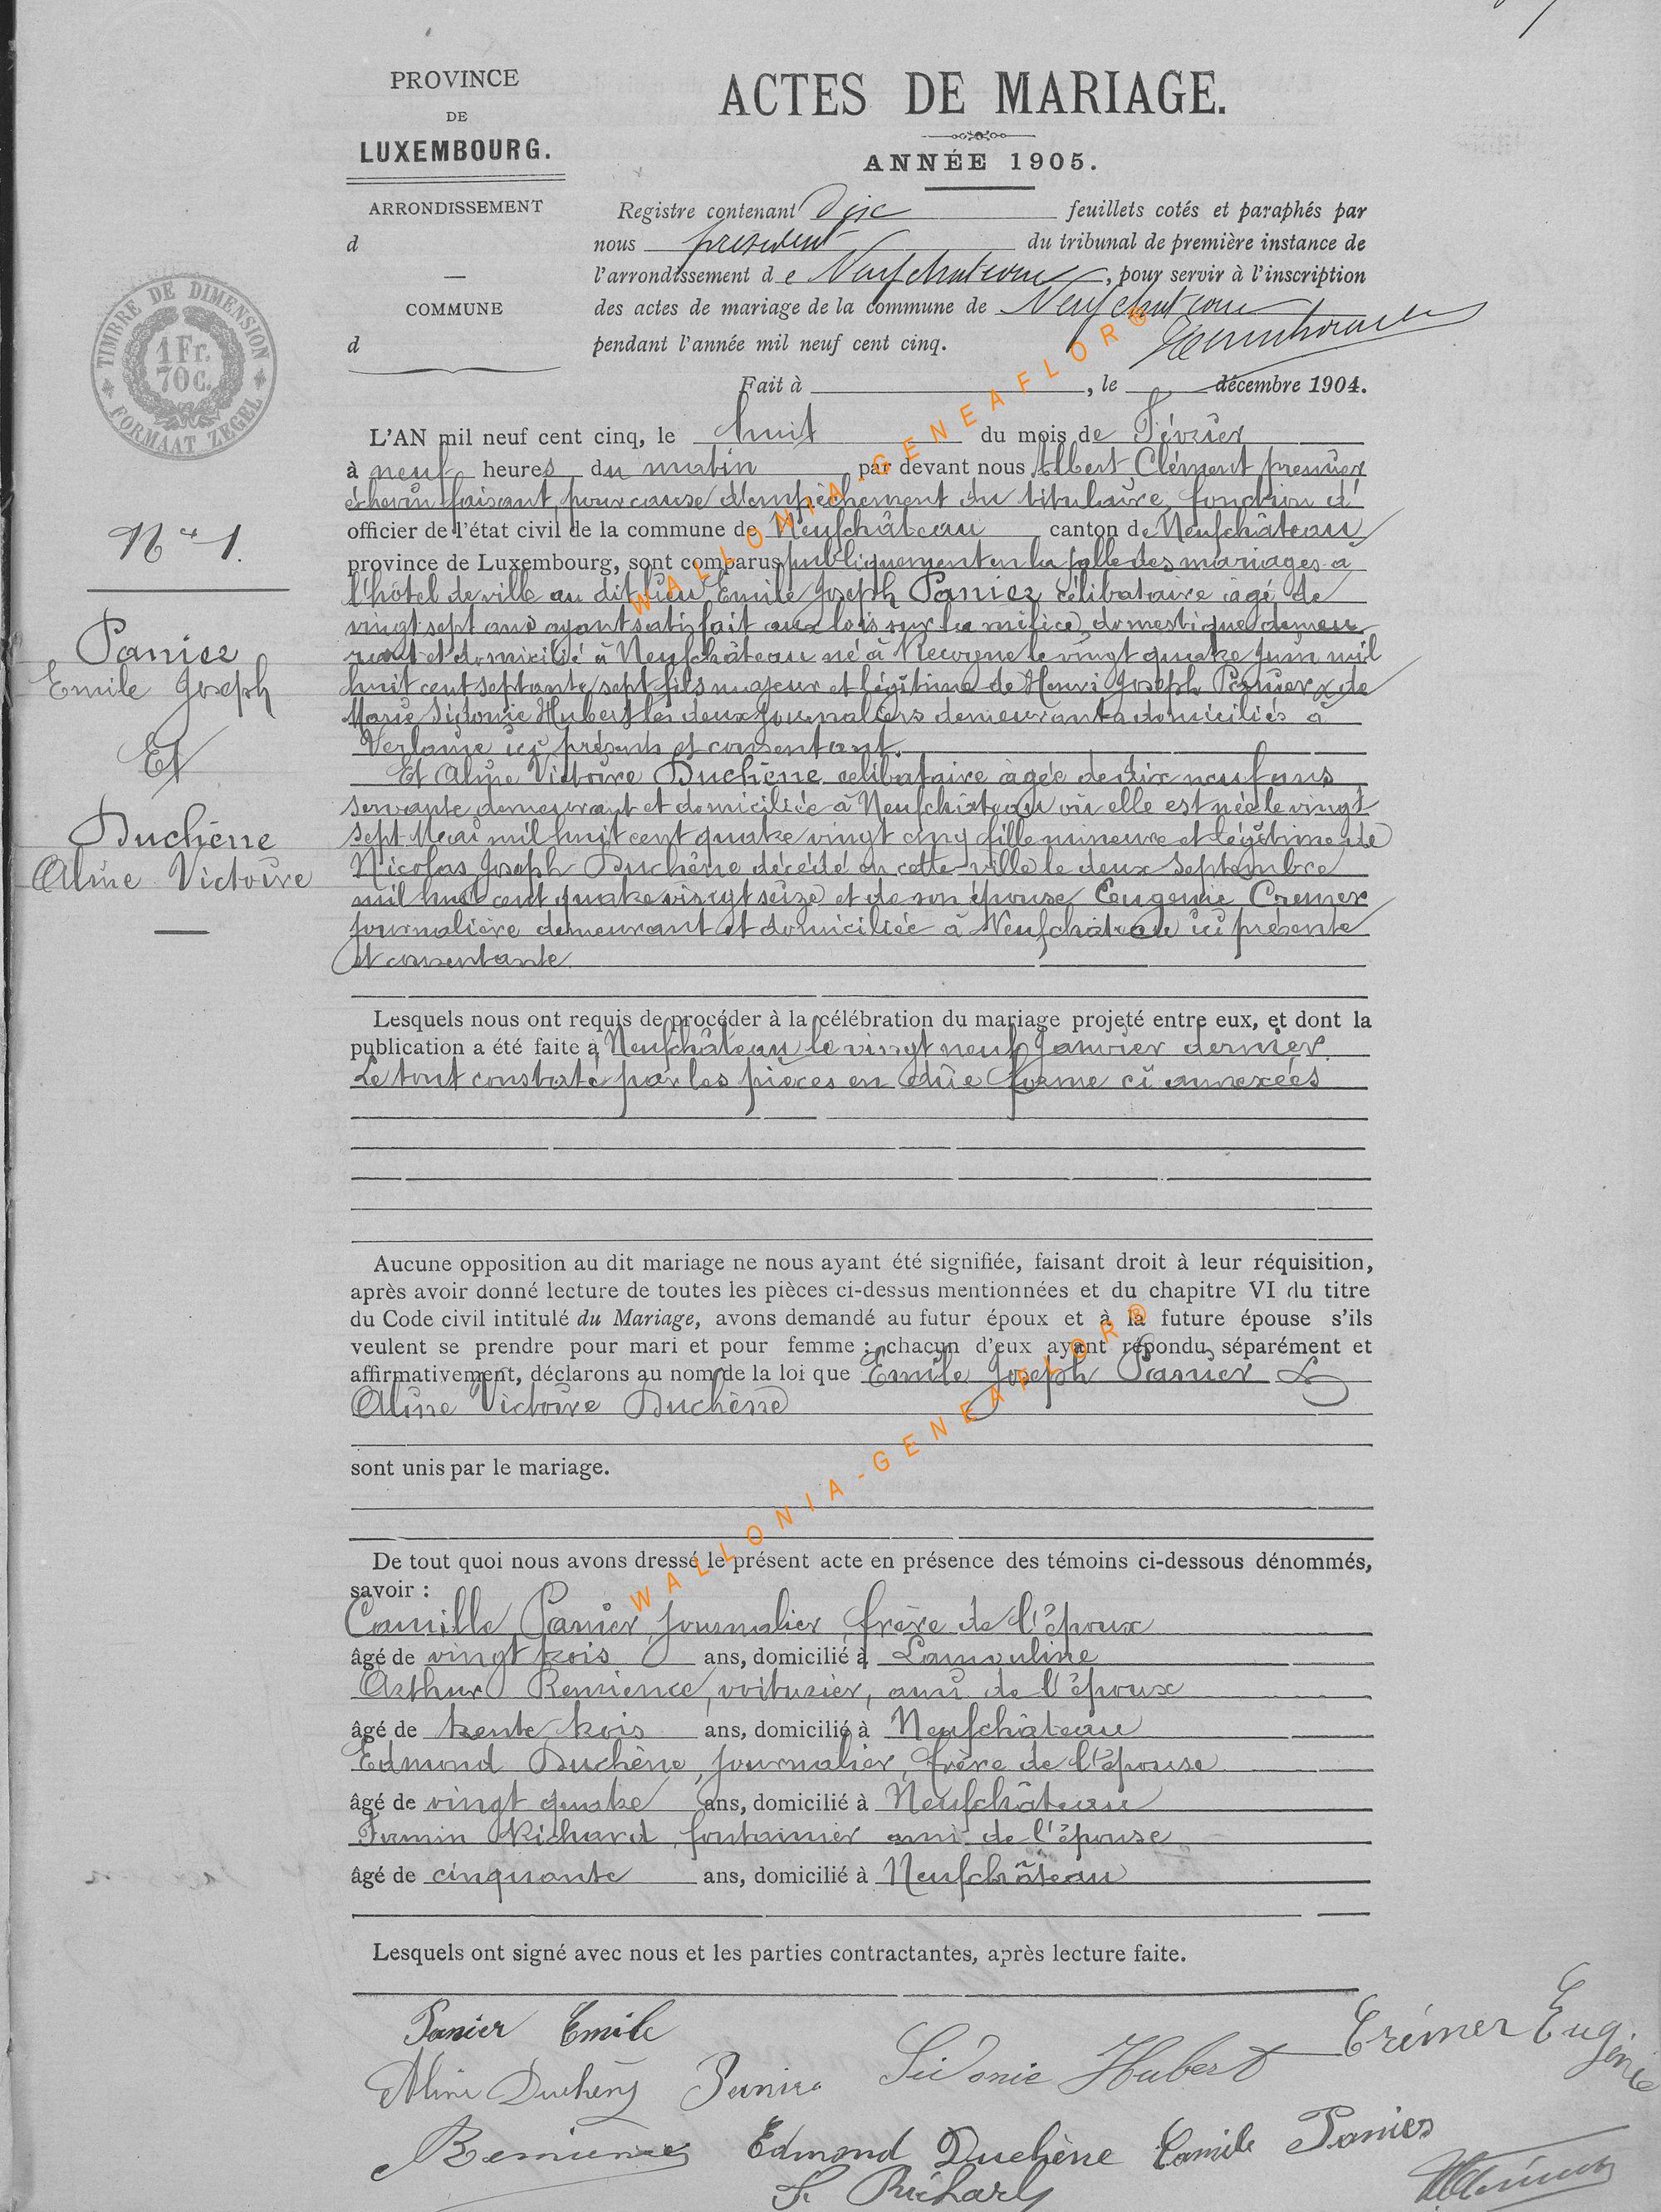 PROVINCE
DE
LUXEMBOURG.
ARRONDISSEMENT
d
COMMUNE
d
ACTES DE MARIAGE.
ANNÉE 1905.
Registre contenant dix feuillets cotés et paraphés par
nous président du tribunal de première instance de
l'arrondissement de Neufchateau, pour servir à l'inscription
des actes de mariage de la commune de Neufchateau
pendant l'année mil neuf cent cinq.
Fait à , le décembre 1904.
TIMBRE DE DIMENSION
1 Fr.
70 C.
FORMAAT ZEGEL
N° 1.
Panier
Emile Joseph
Et
Duchêne
Aline Victoire
L'AN mil neuf cent cinq, le huit du mois de Février
à neuf heures du matin par devant nous Albert Clément premier
échevin faisant, pour cause d'empêchement du titulaire, fonction d'
officier de l'état civil de la commune de Neufchâteau canton de Neufchâteau,
province de Luxembourg, sont comparus publiquement en la salle des mariages a
l'hôtel de ville au dit lieu Emile Joseph Panier célibataire âgé de
vingt sept ans ayant satisfait aux lois sur la milice, domestique demeu
rant et domicilié à Neufchâteau né à Recogne le vingt quatre Juin mil
huit cent septante sept fils majeur et légitime de Henri Joseph Panier & de
Marie Sidonie Hubert les deux journaliers demeurant & domiciliés à
Verlaine ici présents et consentant.
Et Aline Victoire Duchêne célibataire âgée de dix neuf ans
servante demeurant et domiciliée à Neufchâteau où elle est née le vingt
sept Mai mil huit cent quatre vingt cinq fille mineure et légitime de
Nicolas Joseph Duchêne décédé en cette ville le deux Septembre
mil huit cent quatre vingt seize et de son épouse Eugenie Cremer
journalière demeurant et domiciliée à Neufchâteau ici présente
et consentante.
Lesquels nous ont requis de procéder à la célébration du mariage projeté entre eux, et dont la
publication a été faite à Neufchâteau le vingt neuf Janvier dernier.
Le tout constaté par les pièces en due forme ci annexées
Aucune opposition au dit mariage ne nous ayant été signifiée, faisant droit à leur réquisition,
après avoir donné lecture de toutes les pièces ci-dessus mentionnées et du chapitre VI du titre
du Code civil intitulé du Mariage, avons demandé au futur époux et à la future épouse s'ils
veulent se prendre pour mari et pour femme ; chacun d'eux ayant répondu séparément et
affirmativement, déclarons au nom de la loi que Emile Joseph Panier &
Aline Victoire Duchêne
sont unis par le mariage.
De tout quoi nous avons dressé le présent acte en présence des témoins ci-dessous dénommés,
savoir :
Camille Panier, journalier, frère de l'époux
âgé de vingt trois ans, domicilié à Lamouline
Arthur Remience, voiturier, ami de l'époux
âgé de trente trois ans, domicilié à Neufchâteau
Edmond Duchêne, journalier, frère de l'épouse
âgé de vingt quatre ans, domicilié à Neufchâteau
Firmin Richard, fontainier ami de l'épouse
âgé de cinquante ans, domicilié à Neufchâteau
Lesquels ont signé avec nous et les parties contractantes, après lecture faite.
Panier Emile
Sidonie Hubert Crémer Eugenie
Aline Duchêne Panier
Remience Edmond Duchêne Camile Panier
F. Richard
WALLONIA-GENEAFLOR®
WALLONIA-GENEAFLOR®